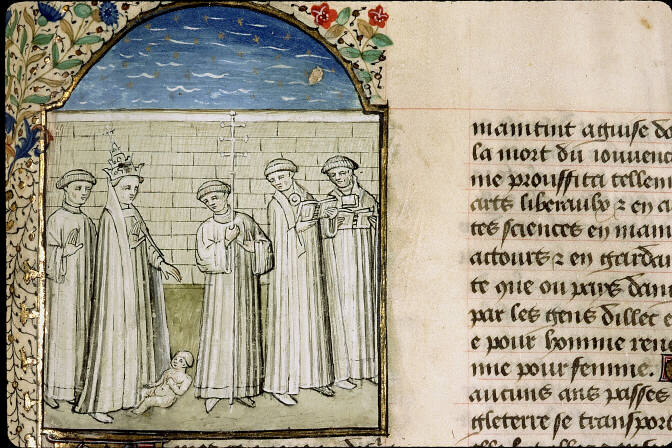 maintint aguise de
la mort du iouvenc
me prouffita tellem
arts liberaulx ⁊ en a
tes sciences en mani
actours ⁊ en gardan
te que ou pays dam
par les gens dillec e
e pour homme reno
mie pour femme.
aucuns ans passes
gleterre se transpor